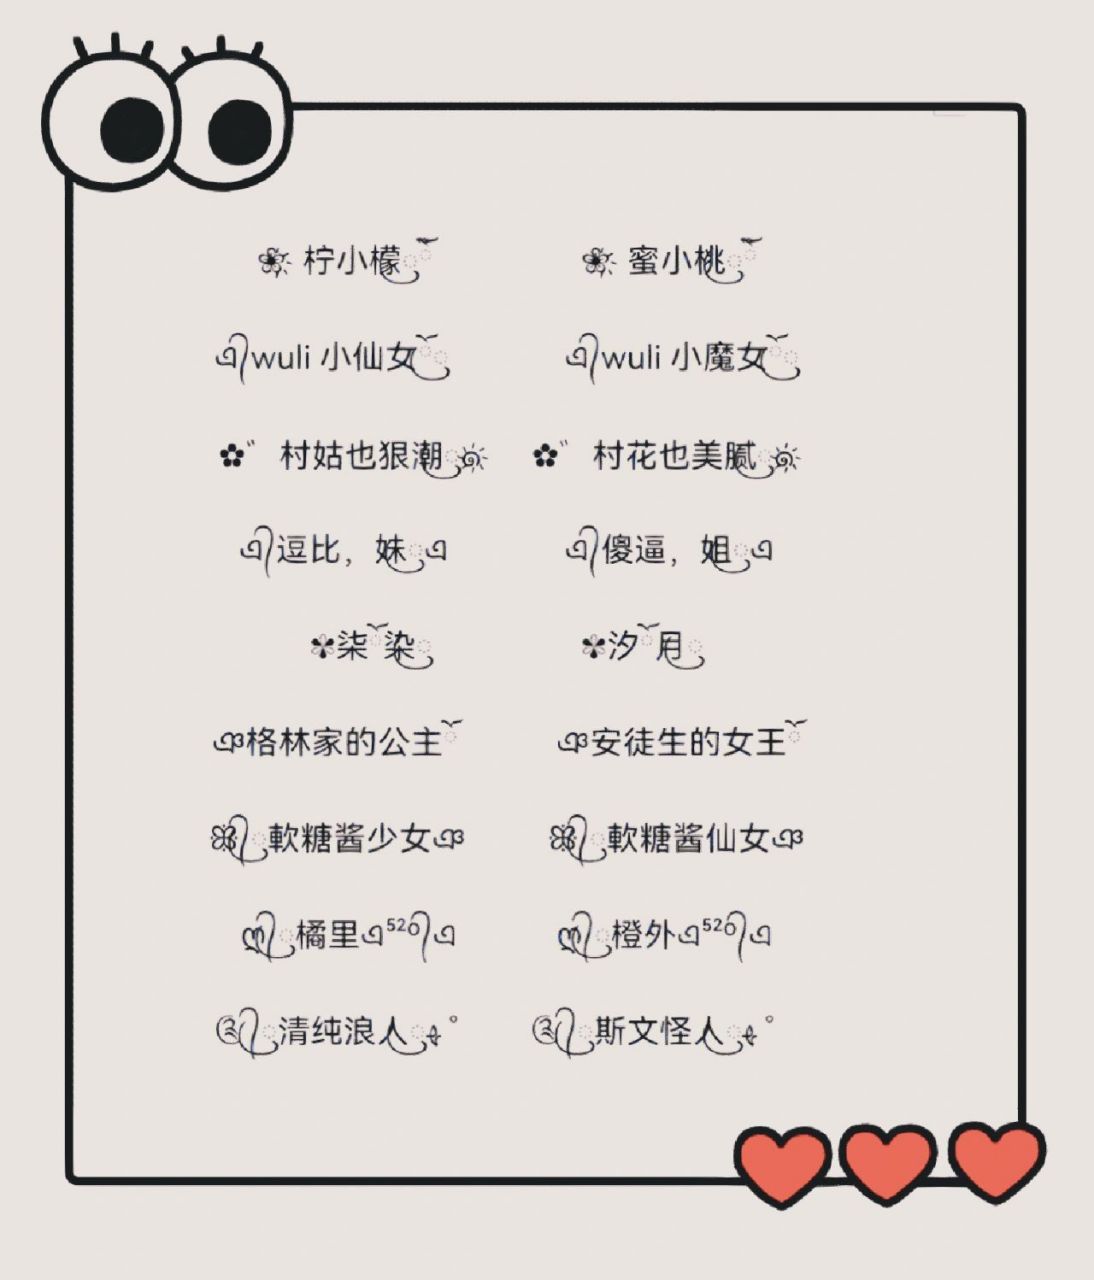 柠小檬 蜜小桃
wuli 小仙女 wuli 小魔女
✿ 村姑也狠潮 ✿ 村花也美腻
逗比，妹 傻逼，姐
柒 染 汐 月
格林家的公主 安徒生的女王
軟糖酱少女 軟糖酱仙女
橘里⁵²⁰ 橙外⁵²⁰
清纯浪人 斯文怪人